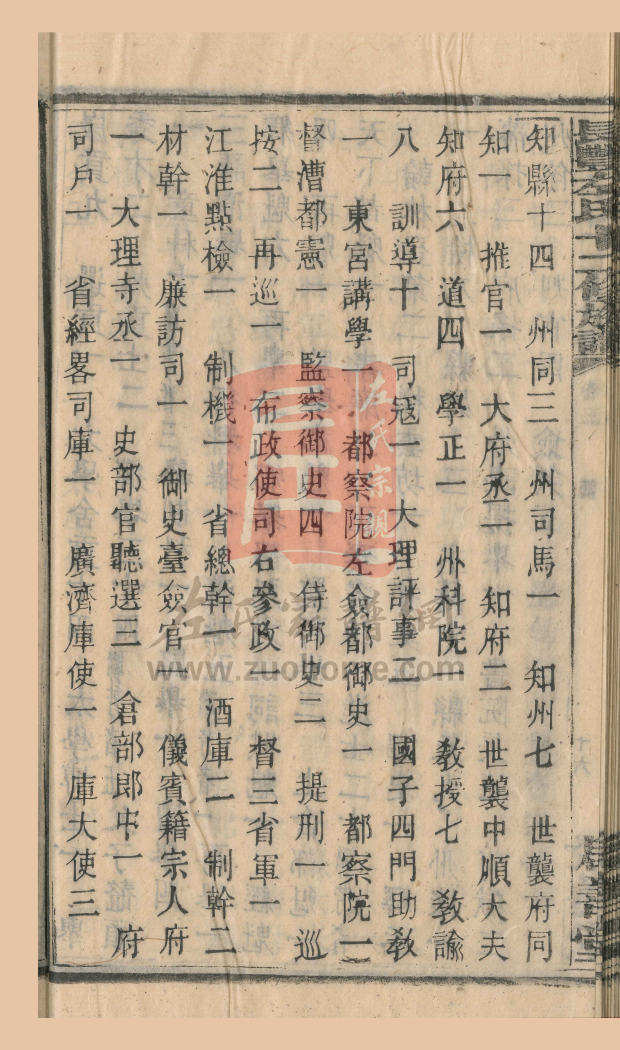 知縣十四　州同三　州司馬一　知州七　世襲府同
知一　推官一　大府丞二　知府二　世襲中順大夫
知府六　道四　學正一　州科院一　敎授七　敎諭
八　訓導十　司寇一　大理評事二　國子四門助敎
一　東宮講學一　都察院左僉都御史一　都察院一
督漕都憲一　監察御史四　侍御史二　提刑一　巡
按二　再巡一　布政使司右參政一　督三省軍一
江淮點檢一　制機一　省總幹一　酒庫二　制幹二
材幹一　廉訪司一　御史臺僉官一　儀賓籍宗人府
一　大理寺丞一　史部官聽選三　倉部郎中一　府
司戶一　省經畧司庫一　廣濟庫使一　庫大使三
左氏宗親
www.zuohome.com